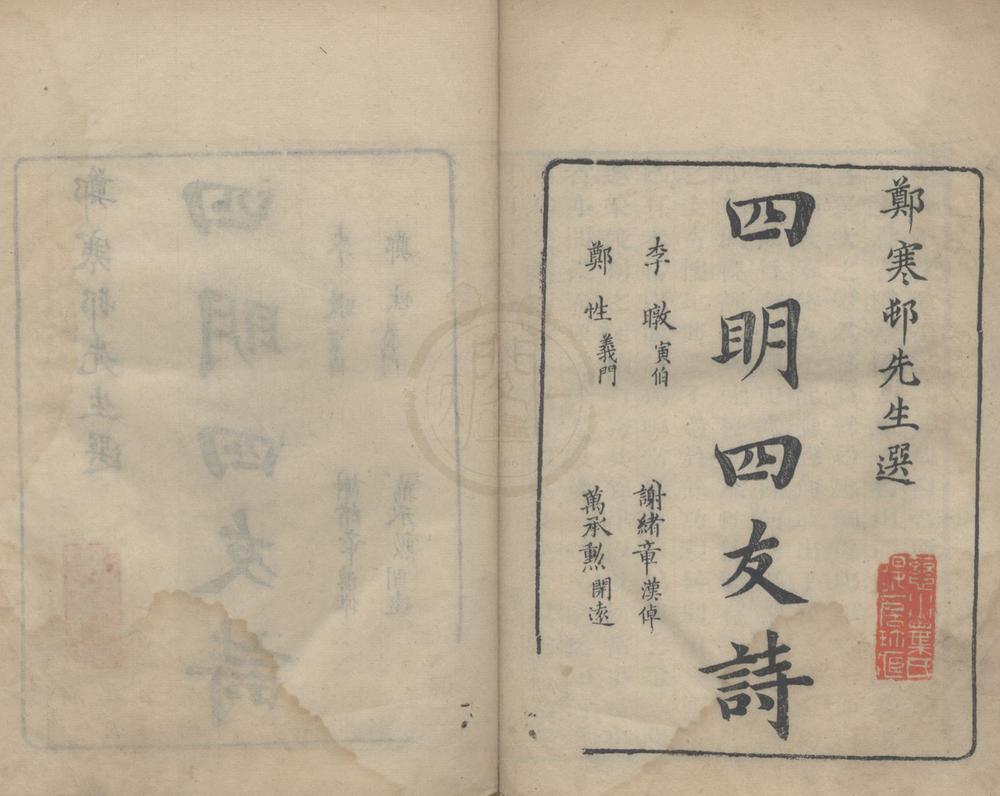 鄭寒邨先生選
四明四友詩
李暾寅伯
謝緒章漢倬
鄭性義門
萬承勲開遠